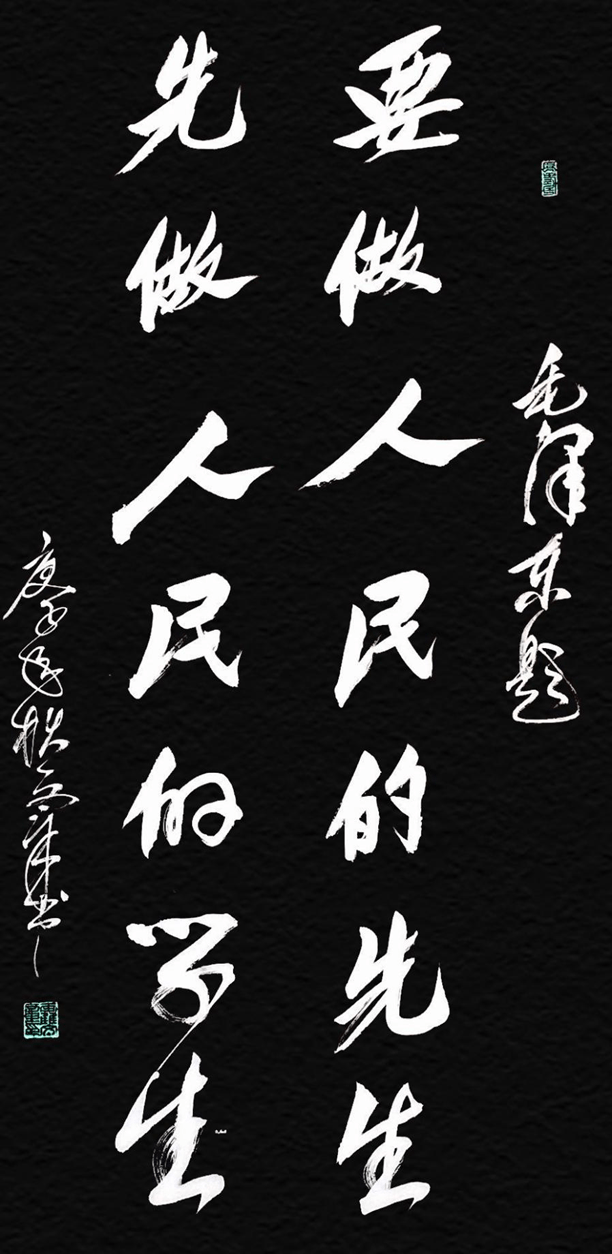 毛泽东题
要做人民的先生
先做人民的学生
庚子年 书